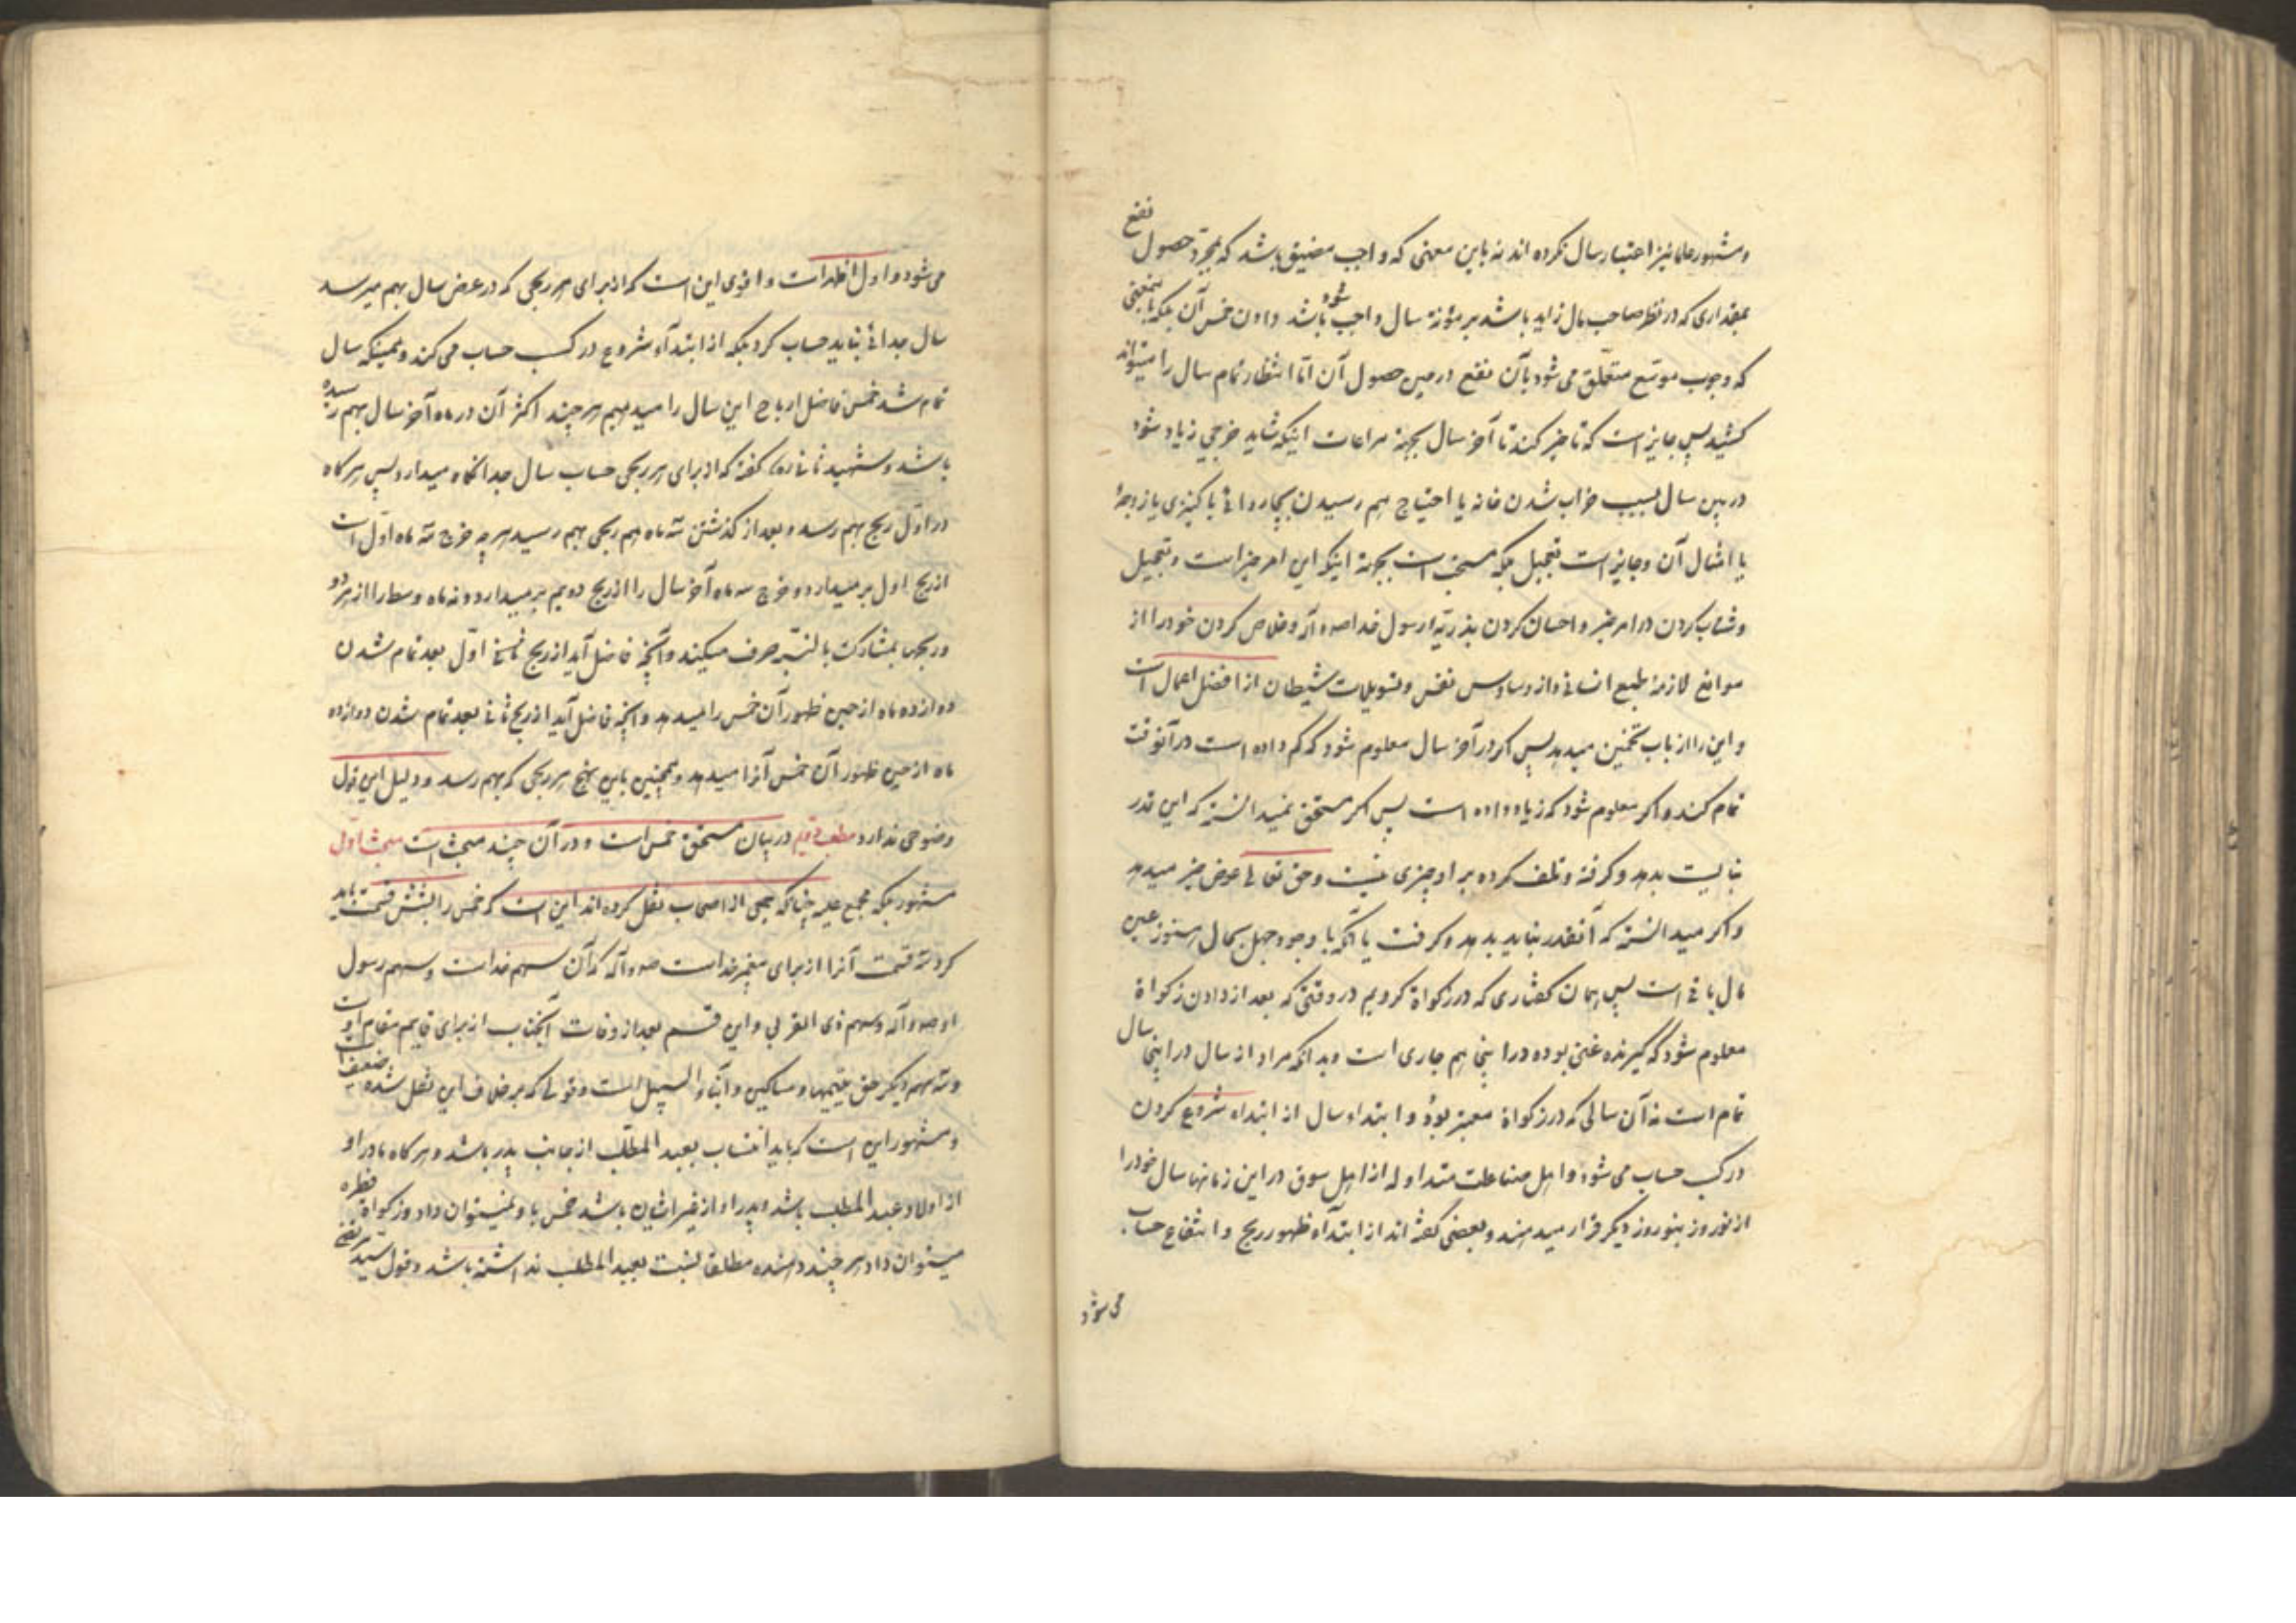 و مشهور علما نیز اعتبار سال نکرده اند نه باین معنی که واجب مضیق باشد که بمجرد حصول نفع
بمقداری که در نظر صاحب مال زاید باشد بر مؤنة سال واجب شود باشد دادن خمس آن بلکه بمعنی
که وجوب موسّع متعلّق می شود بآن نفع در حین حصول آن امّا انتظار تمام سال را میتواند
کشید پس جایز است که تاخیر کند تا آخر سال بجهة مراعات اینکه شاید خرجی زیاد شود
در بین سال بسبب خراب شدن خانه یا احتیاج بهم رسیدن بچاروائی یا کنیزی یا زوجهٔ
یا امثال آن و جایز است تعجیل بلکه مستحب است بجهة اینکه این امر خیر است و تعجیل
و شتاب کردن در امر خیر و احسان کردن بذریّه رسول خدا ص و آله و خلاص کردن خود را از
موانع لازمهٔ طبع انسانی و از وساوس نفس و تسویلات شیطان از افضل اعمال است
و این را از باب تخمین میدهد پس اگر در آخر سال معلوم شود که کم داده است در آنوقت
تمام کند و اگر معلوم شود که زیاد داده است پس اگر مستحق نمیدانسته که این قدر
نبایست بدهد و گرفته و تلف کرده بر او چیزی نیست و حق تعالی عوض خیر میدهد
و اگر میدانسته که آنقدر نباید بدهد و گرفت یا آنکه با وجود جهل بحال هنوز عین
مال باقی است پس همان گفتاری که در زکواة کردیم در وقتی که بعد از دادن زکواة
معلوم شود که گیرنده غنی بوده در اینجا هم جاری است و بدانکه مراد از سال در اینجا سال
تمام است نه آن سالی که در زکواة معتبر بود و ابتداء سال از ابتداء شروع کردن
در کسب حساب می شود و اهل صناعات متداوله از اهل سوق در این زمانها سال خود را
از نوروز بنوروز دیگر قرار میدهند و بعضی گفته اند از ابتدآء ظهور ربح و انتفاع حساب
می شود
می شود و اول اظهر است و اقوی این است که از برای هر ربحی که در عرض سال بهم میرسد
سال جدائی نباید حساب کرد بلکه از ابتدآء شروع در کسب حساب می کند و همینکه سال
تمام شد خمس فاضل ارباح این سال را میدهیم هر چند اکثر آن در ماه آخر سال بهم رسیده
باشد و شهید ثانی ره گفته که از برای هر ربحی حساب سال جداگانه میدارد پس هر گاه
در اوّل ربح بهم رسد و بعد از گذشتن سه ماه هم ربحی بهم رسید هر چه خرج سه ماه اوّل است
از ربح اول بر میدارد و خرج سه ماه آخر سال را از ربح دویم بر میدارد و نه ماه وسط را از هر دو
ربحها بمشارکت بالنسبة صرف میکند و آنچه فاضل آید از ربح اوّل بعد تمام شدن
دوازده ماه از حین ظهور آن خمس را میدهد و آنچه فاضل آید از ربح ثانی بعد تمام شدن دوازده
ماه از حین ظهور آن خمس آنرا میدهد و همچنین باین نهج هر ربحی که بهم رسد و دلیل این قول
وضوحی ندارد مطلب دویم در بیان مستحق خمس است و در آن چند مبحث است مبحث اوّل
مشهور بلکه مجمع علیه چنانکه جمعی از اصحاب نقل کرده اند این است که خمس را بشش قسمت باید
کرد سه قسمت آنرا از برای پیغمبر خداست ص و آله که آن سهم خداست و سهم رسول
او ص و آله و سهم ذی القربی و این قسم بعد از وفات آنجناب از برای قایم مقام او است
و سه سهم دیگر حق یتیمها و مساکین و ابناء السبیل است و قولی که بر خلاف این نقل شده ضعیف است
و مشهور این است که باید انتساب بعبد المطّلب از جانب پدر باشد و هر گاه مادر او
از اولاد عبد المطلب باشد و پدر او از غیر ایشان باشد خمس باو نمیتوان داد و زکواة فطره
میتوان داد هر چند دهنده مطلقا نسبت بعبد المطلب نداشته باشد و قول سید مرتضی